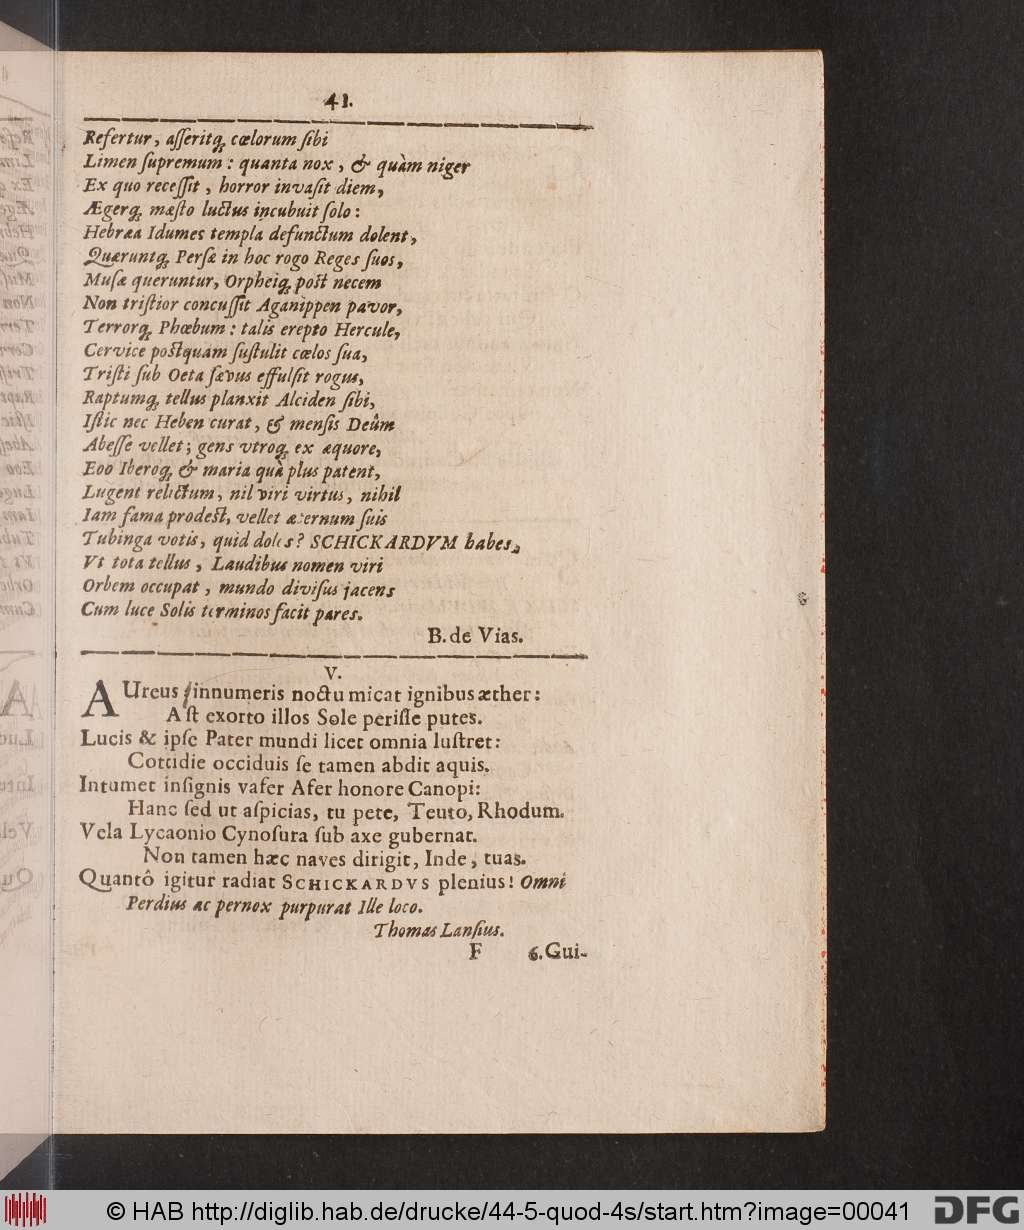 41.
Refertur, aſſeritq́; cœlorum ſibi
Limen ſupremum: quanta nox, & quàm niger
Ex quo receſſit, horror invaſit diem,
Ægerq́; mæſto luctus incubuit ſolo:
Hebræa Idumes templa defunctum dolent,
Quæruntq́; Perſæ in hoc rogo Reges ſuos,
Muſæ queruntur, Orpheiq́; poſt necem
Non triſtior concuſſit Aganippen pavor,
Terrorq́; Phœbum: talis erepto Hercule,
Cervice poſtquam ſuſtulit cœlos ſua,
Triſti ſub Oeta ſævus effulſit rogus,
Raptumq́; tellus planxit Alciden ſibi,
Iſtic nec Heben curat, & menſis Deûm
Abeſſe vellet; gens vtroq́; ex æquore,
Eoo Iberoq́; & maria quà plus patent,
Lugent relictum, nil viri virtus, nihil
Iam fama prodeſt, vellet æternum ſuis
Tubinga votis, quid doles? SCHICKARDVM habes,
Vt tota tellus, Laudibus nomen viri
Orbem occupat, mundo diviſus jacens
Cum luce Solis terminos facit pares.
B. de Vias.
V.
AUreus innumeris noctu micat ignibus æther:
Aſt exorto illos Sole periſſe putes.
Lucis & ipſe Pater mundi licet omnia luſtret:
Cottidie occiduis ſe tamen abdit aquis.
Intumet inſignis vafer Afer honore Canopi:
Hanc ſed ut aſpicias, tu pete, Teuto, Rhodum.
Vela Lycaonio Cynoſura ſub axe gubernat.
Non tamen hæc naves dirigit, Inde, tuas.
Quantô igitur radiat SCHICKARDVS plenius! Omni
Perdius ac pernox purpurat Ille loco.
Thomas Lanſius.
F 6. Gui-
© HAB http://diglib.hab.de/drucke/44-5-quod-4s/start.htm?image=00041
DFG